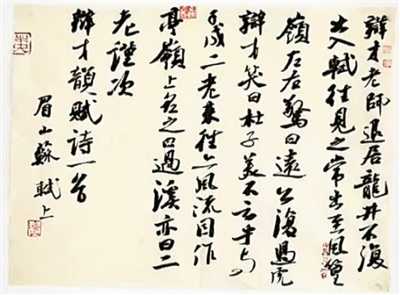 辯才老師退居龍井不復
出入軾往見之常出至風篁
嶺左右驚曰遠公復過虎
辯才笑曰杜子美不云乎與
子成二老來往亦風流因作
亭嶺上名之曰過溪亦曰二
老謹次
辯才韻賦詩一首
眉山蘇軾上